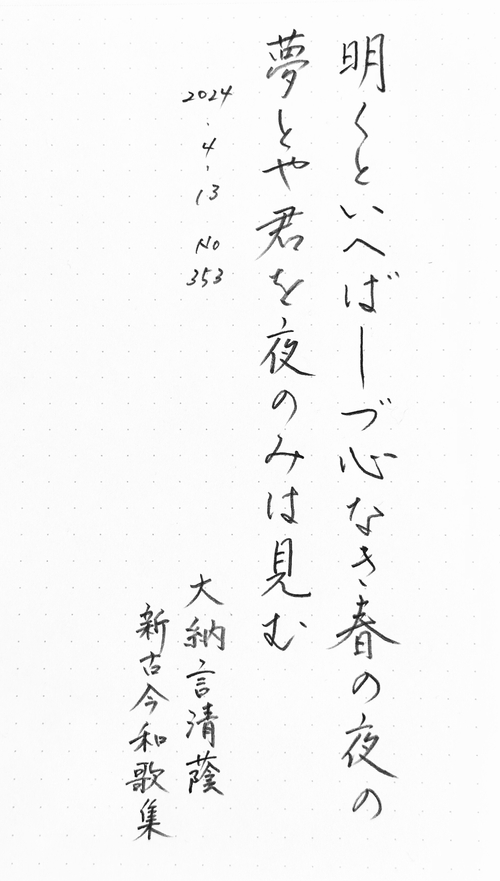 明くといへばしづ心なき春の夜の
夢とや君を夜のみは見む
2024.4.13 No 353
大納言清蔭
新古今和歌集